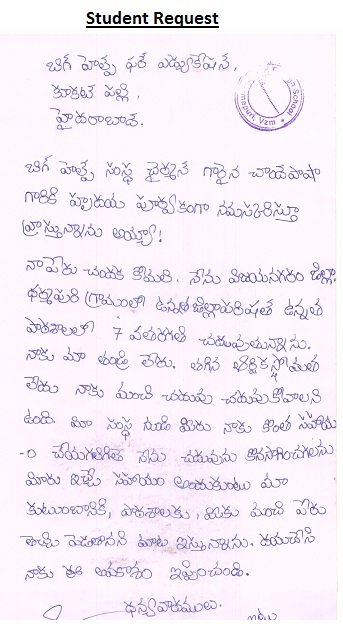 Student Request
బిగ్ హెల్ప్ ఫర్ ఎడ్యుకేషన్,
కూకట్ పల్లి,
హైదరాబాద్.
School
mapuri, Vzm
బిగ్ హెల్ప్ సంస్థ చైర్మన్ గారైన చాంద్ పాషా
గారికి హృదయ పూర్వకంగా నమస్కరిస్తూ
వ్రాస్తున్నాను అయ్యా!
నా పేరు చందక కొమరి. నేను విజయనగరం జిల్లా
ధర్మపురి గ్రామంలో ఉన్నత జిల్లాపరిషత్ ఉన్నత
పాఠశాలలో 7 వతరగతి చదువుతున్నాను.
నాకు మా తండ్రి లేరు. తగిన ఆర్థికస్తోమత
లేదు నాకు మంచి చదువు చదుకోవాలని
ఉంది. మీ సంస్థ నుండి మీరు నాకు కొంత సహాయ
-ం చేయగలిగితే నేను చదువును కొనసాగించగలను
మీరు ఇచ్చే సహాయం అందుకుంటు మా
కుటుంబానికి, పాఠశాలకు, మంచి పేరు
తెచ్చి పెడతానని మాట ఇస్తున్నాను. దయచేసి
నాకు ఈ అవకాశం ఇప్పించండి.
ధన్యవాదములు.
ఇట్లు